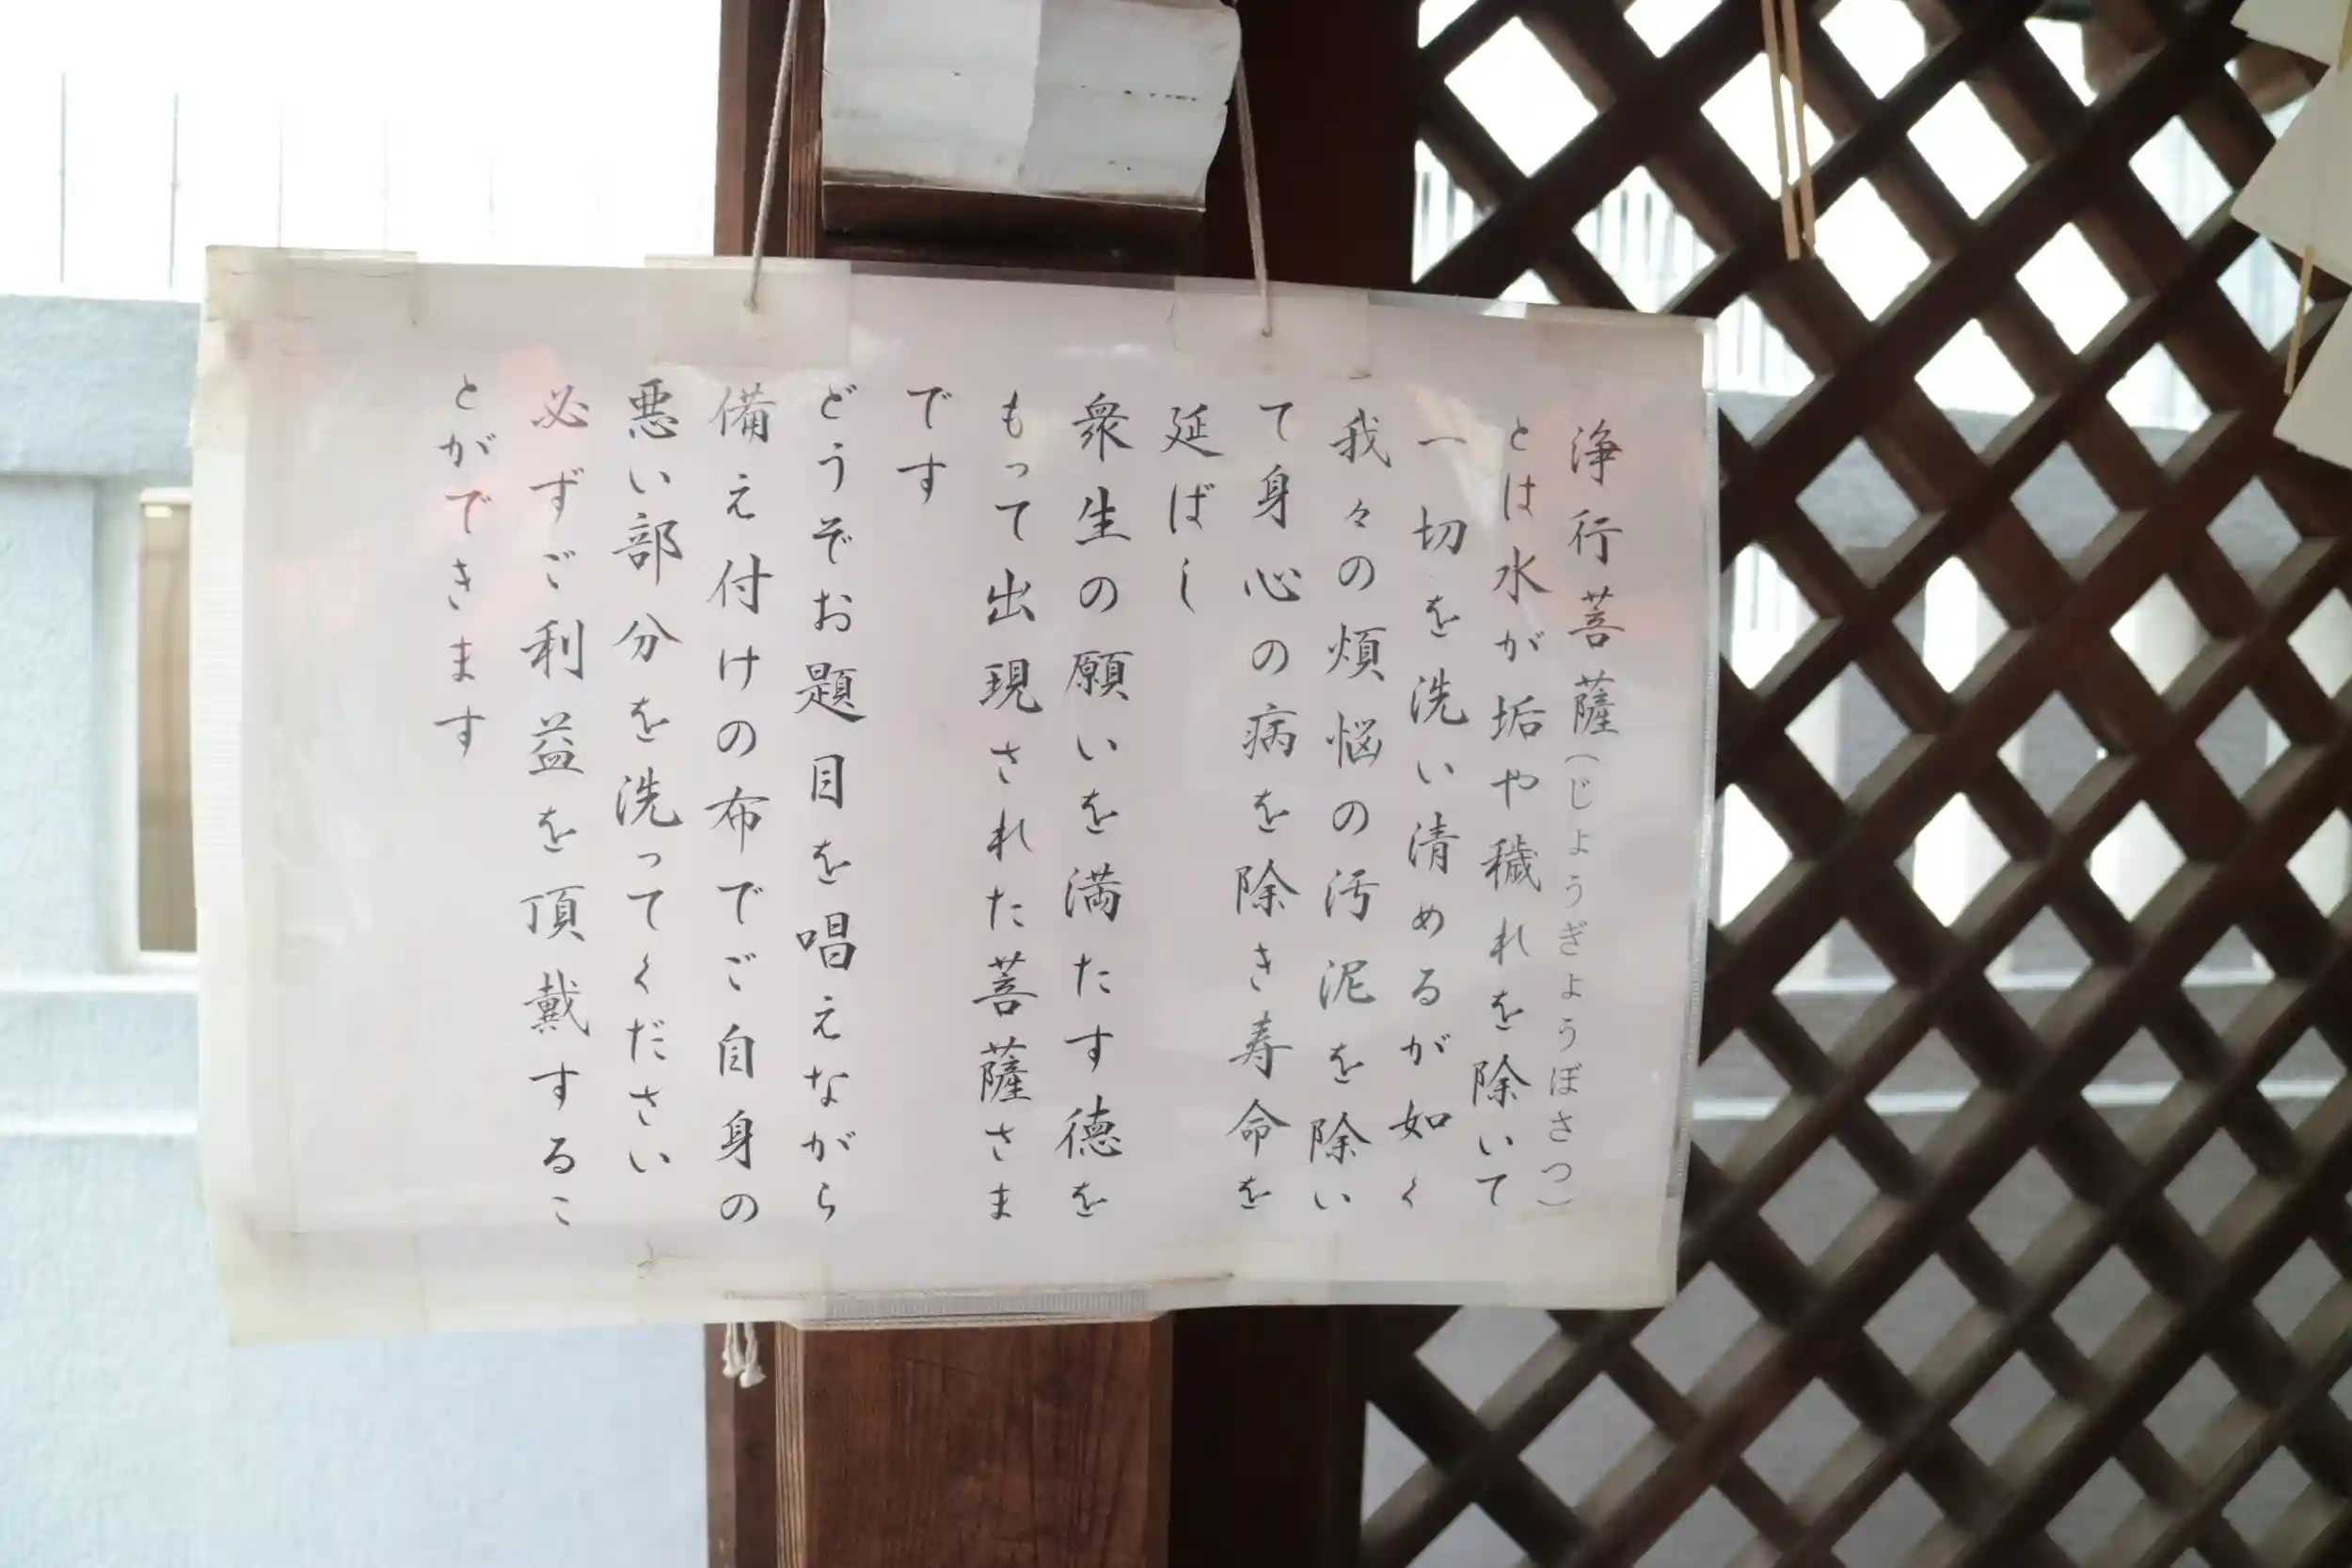 浄行菩薩(じょうぎょうぼさつ)
とは水が垢や穢れを除いて
一切を洗い清めるが如く
我々の煩悩の汚泥を除い
て身心の病を除き寿命を
延ばし
衆生の願いを満たす徳を
もって出現された菩薩さま
です
どうぞお題目を唱えながら
備え付けの布でご自身の
悪い部分を洗ってください
必ずご利益を頂戴するこ
とができます